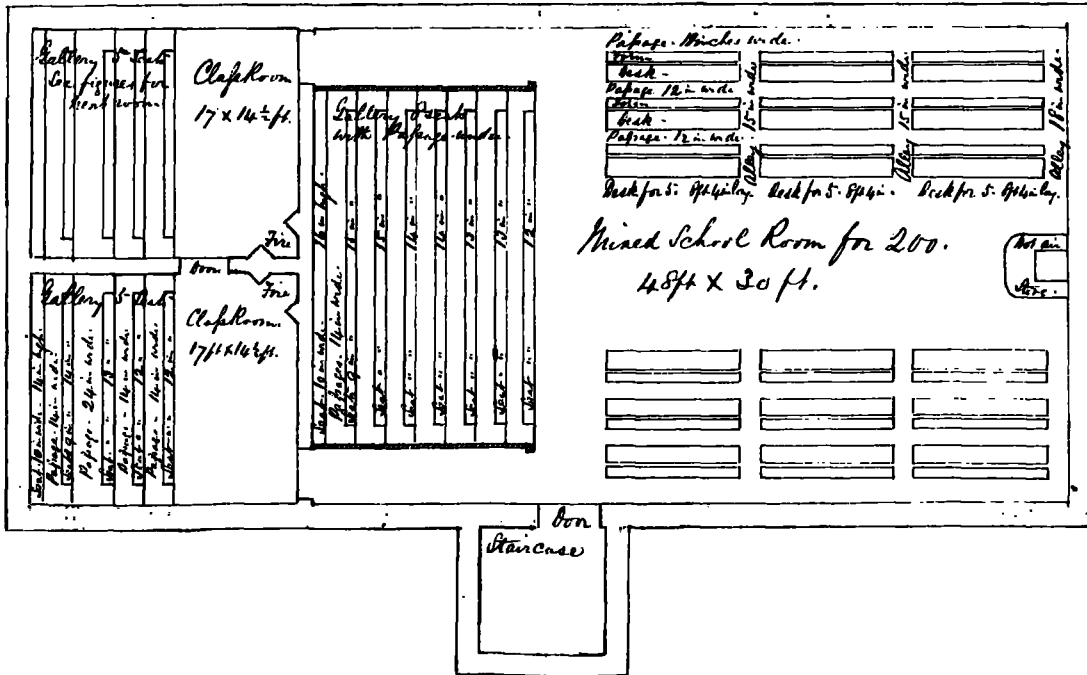 Gallery 5 Seats
See figures for
next room
Class Room
17 x 14½ ft.
Fire
Door
Fire
Gallery 5 Seats
Class Room.
17 ft x 14½ ft.
Seat 10 in wide. 14 in high.
Passage 14 in wide.
Seat 9 in " 14 in "
Passage - 24 in wide.
Seat " " 13 " "
Passage - 14 in wide.
Seat " " 12 " "
Passage - 14 in wide.
Seat " " 12 in "
Gallery 8 seats
with Passage under.
Seat 10 in wide. 16 in high.
Passages 14 in wide.
Seats 9 in " 15 in "
Seat " " 15 in "
Seat " " 14 in "
Seat " " 14 in "
Seat " " 13 in "
Seat " " 13 in "
Seat " " 12 in "
Passage 18 inches wide.
Form
Desk -
Passage 12 in wide
Form
Desk -
Passage - 12 in wide.
Alley 15 in wide
Alley 15 in wide.
Alley 18 in wide.
Desk for 5. 8ft 4in long.
Desk for 5. 8ft 4in.
Desk for 5. 8ft 4in long.
Mixed School Room for 200.
48ft X 30 ft.
Hot air
Stove.
Door
Staircase